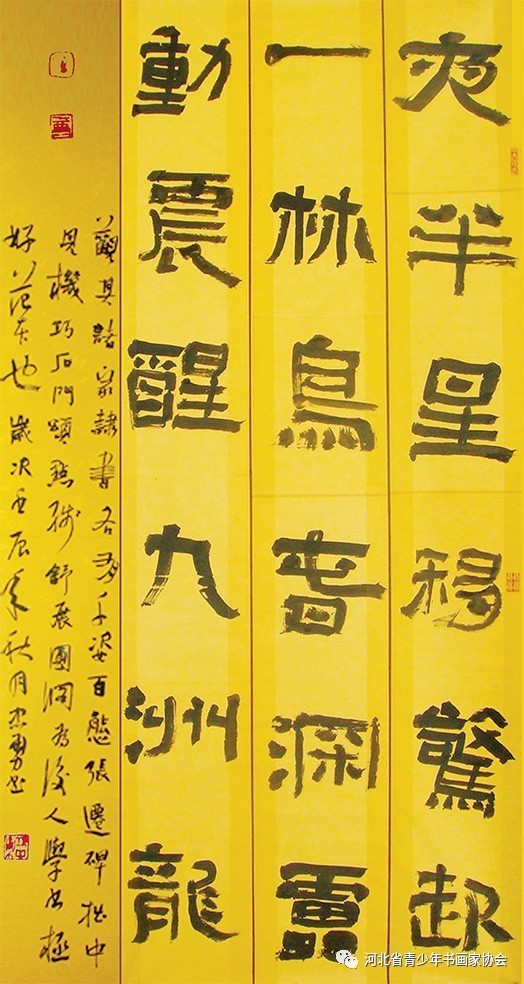 夜半星移驚起
一林鳥春深雷
動震醒九洲龍
觀其諸家隸書各千姿百態張遷碑拙中
見機巧石門頌點線舒展圓潤為後人學書極
好范本也歲次壬辰年秋月勇書
河北省青少年书画家协会